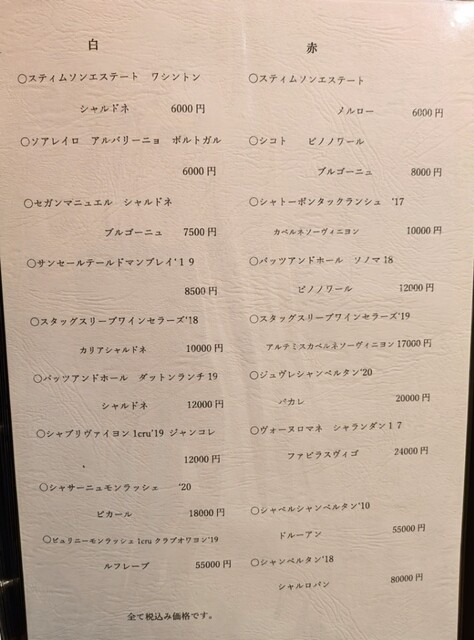 白
○スティムソンエステート ワシントン
シャルドネ 6000円
○ソアレイロ アルバリーニョ ポルトガル
6000円
○セガンマニュエル シャルドネ
ブルゴーニュ 7500円
○サンセールテールドマンブレイ'19
8500円
○スタッグスリープワインセラーズ'18
カリアシャルドネ 10000円
○パッツアンドホール ダットンランチ19
シャルドネ 12000円
○シャブリヴァイヨン1cru'19 ジャンコレ
12000円
○シャサーニュモンラッシェ '20
ピカール 18000円
○ピュリニーモンラッシェ1cruクラブオワヨン'19
ルフレーブ 55000円
赤
○スティムソンエステート
メルロー 6000円
○シコト ピノノワール
ブルゴーニュ 8000円
○シャトーポンタックランシュ '17
カベルネソーヴィニヨン 10000円
○パッツアンドホール ソノマ18
ピノノワール 12000円
○スタッグスリープワインセラーズ'19
アルテミスカベルネソーヴィニヨン17000円
○ジュヴレシャンベルタン'20
バカレ 20000円
○ヴォーヌロマネ シャランダン17
ファビラスヴィゴ 24000円
○シャペルシャンベルタン'10
ドルーアン 55000円
○シャンベルタン'18
シャルロパン 80000円
全て税込み価格です。